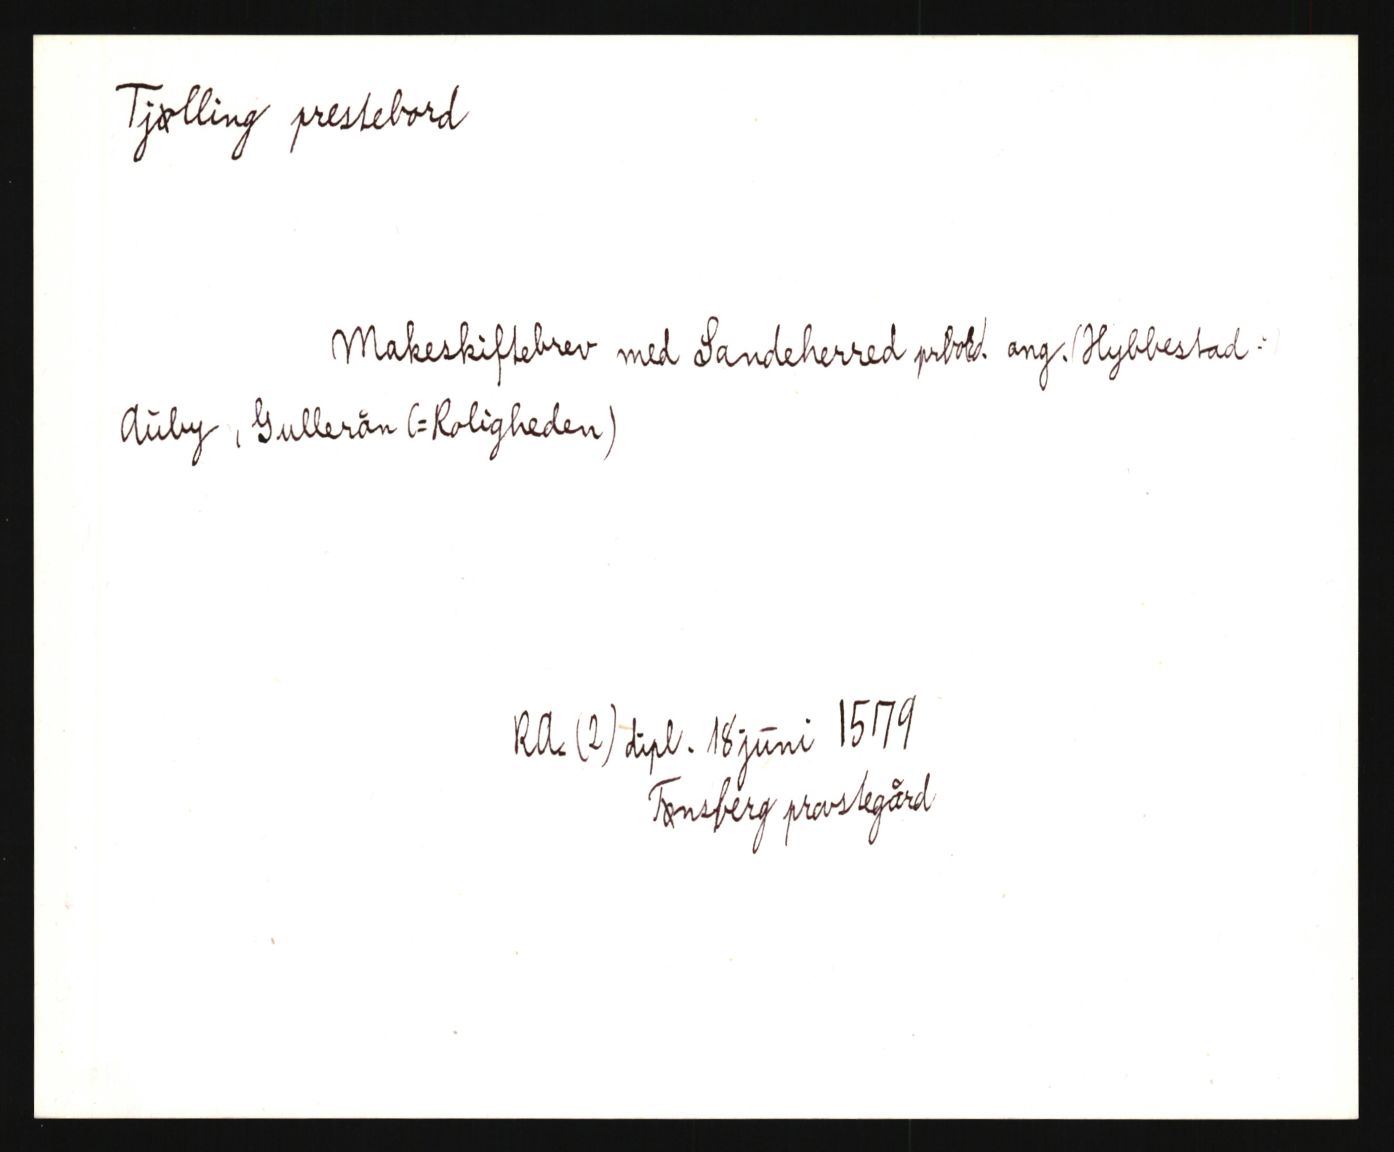 Tjølling prestebord
Makeskiftebrev med Sandeherred prbord. ang. (Hybbestad :)
Auby, Gullerån (=Roligheden)
RA. (2) dipl. 18 juni 1579
Tønsberg provstegård